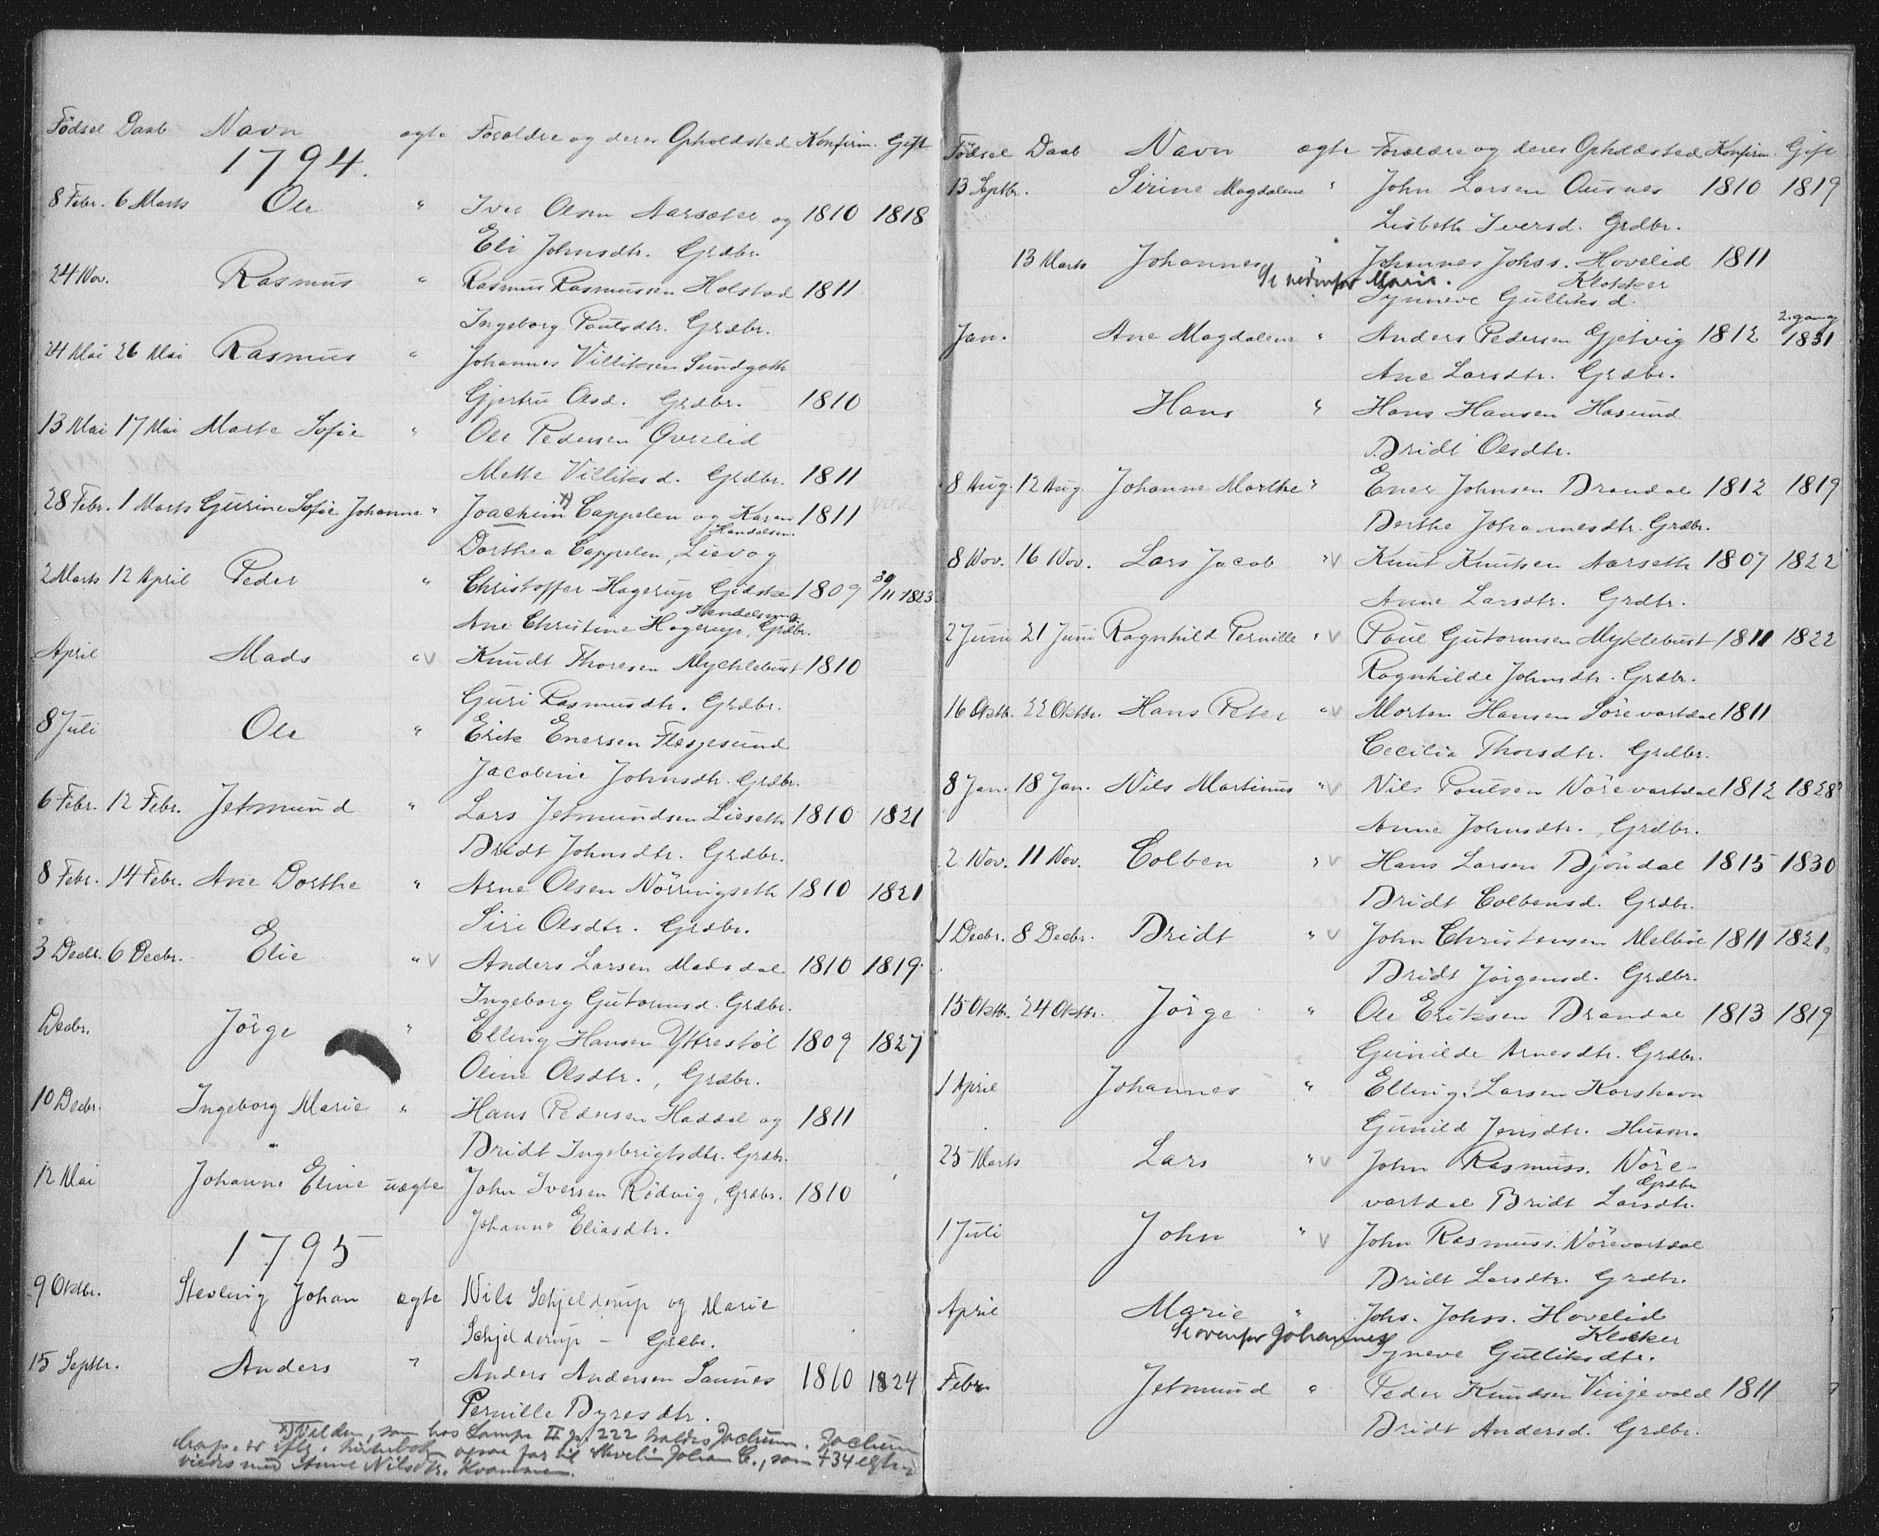 Fødsel Daab Navn ægte Forældre og deres Opholdsted Konfirm. Gift
1794.
8 Febr. 6 Marts Ole " Iver Olsen Aarsæter og 1810 1818
Eli Johnsdtr. Grdbr.
24 Nov. Rasmus " Rasmus Rasmussen Holstad 1811
Ingeborg Poulsdtr. Grdbr.
24 Mai 26 Mai Rasmus " Johannes Villiksen Sundgoth
Gjertru Olsd. Grdbr. 1810
13 Mai 17 Mai Marte Sofie " Ole Pedersen Øvrelid
Mette Villiksd. Grdbr. 1811
28 Febr. 1 Marts Gurine Sofie Johanne " Joachim x) Cappelen og Karen 1811
Handelsm.
Dorthea Cappelen, Lievog
2 Marts 12 April Peder " Christoffer Hagerup Gidske 1809 30/11 1823
Handelsmand
Ane Christine Hagerup, Grdbr.
April Mads " v Knudt Thoresen Mychlebust 1810
Guri Rasmusdtr. Grdbr.
8 Juli Ole " Erik Enersen Flesjesund
Jacobine Johnsdtr. Grdbr.
6 Febr. 12 Febr. Jetmund " Lars Jetmundsen Lieseth 1810 1821
Bridt Johnsdtr. Grdbr.
8 Febr. 14 Febr. Ane Dorthe " Arne Olsen Nörringseth 1810 1821
Siri Olsdtr. Grdbr.
3 Decbr. 6 Decbr. Elie " v Anders Larsen Madsdal 1810 1819
Ingeborg Gutormsd. Grdbr.
Decbr. Jörge " Elling Hansen Yttrestöl 1809 1827
Oline Olsdtr., Grdbr.
10 Decbr. Ingeborg Marie " Hans Pedersen Haddal og 1811
Bridt Ingebrigtsdtr. Grdbr.
12 Mai Johanne Eline uægte John Iversen Rödvig, Grdbr. 1810
Johanne Eliasdtr.
1795
9 Oktbr. Stevling Johan ægte Nils Schjelderup og Marie
Schjelderup - Grdbr.
15 Septbr. Anders " Anders Andersen Saunes 1810 1824
Pernille Dyresdtr.
x) Vilden, som hos Lampe II p. 222 kaldes Jochum. Jochum
Cap. er iflg. kirkebok ogsaa far til Stevelin Johan C., som
viedes med Anne Nilsdtr. Kvamme.
Fødsel Daab Navn ægte Forældre og deres Opholdsted Konfirm. Gift
13 Septbr. Sirine Magdalene " John Larsen Ousnes 1810 1819
Lisbeth Iversd. Grdbr.
13 Marts Johannes " Johannes Johss. Hovelid 1811
Se nedenfor Marie. Klokker
Synneve Gulliksd.
2. gang
Jan. Ane Magdalene " Anders Pedersen Gjetvig 1812 1831
Ane Larsdtr. Grdbr.
Hans " Hans Hansen Hasund
Bridt Olsdtr.
8 Aug. 12 Aug. Johanne Marthe " Ener Johnsen Brandal 1812 1819
Berthe Johannesdtr. Grdbr.
8 Nov. 16 Nov. Lars Jacob " v Knut Knutsen Aarseth 1807 1822
Anne Larsdtr. Grdbr.
2 Juni 21 Juni Ragnhild Pernille " v Poul Gutormsen Myklebust 1811 1822
Ragnhilde Johnsdtr. Grdbr.
16 Oktb. 22 Oktbr. Hans Peter " v Morten Hansen Sörevartdal 1811
Cecilia Thorsdtr. Grdbr.
8 Jan. 18 Jan. Nils Martinus " v Nils Poulsen Nörevartdal 1812 1828
Anne Johnsdtr., Grdbr.
2 Nov. 11 Nov. Colben " v Hans Larsen Bjöndal 1815 1830
Bridt Colbensd. Grdbr.
1 Decbr. 8 Decbr. Bridt " v John Christensen Melböe 1811 1821
Bridt Jörgensd. Grdbr.
15 Oktb. 24 Oktbr. Jörge " Ole Eriksen Brandal 1813 1819
Gunilde Arnesdtr. Grdbr.
1 April Johannes " Elling Larsen Korshavn
Gunild Jensdtr. Husm.
25 Marts Lars " v John Rasmuss. Nöre-
Grdbr
vartdal Bridt Larsdtr.
1 Juli John " v John Rasmuss. Nörevartdal
Bridt Larsdtr. Grdbr.
April Marie " Johs. Johss. Hovelid
Se ovenfor Johannes Klokker
Syneve Gulliksdtr.
Febr. Jetmund " Peder Knudsen Vinjevold 1811
Bridt Andersd. Grdbr.